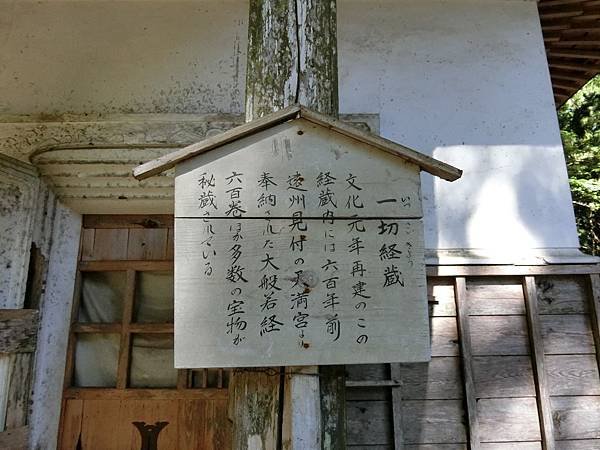 一切経蔵
いっさいきょうぞう
文化元年再建のこの
経蔵内には六百年前
遠州見付の天満宮より
奉納された大般若経
六百巻ほか多数の宝物が
秘蔵されている